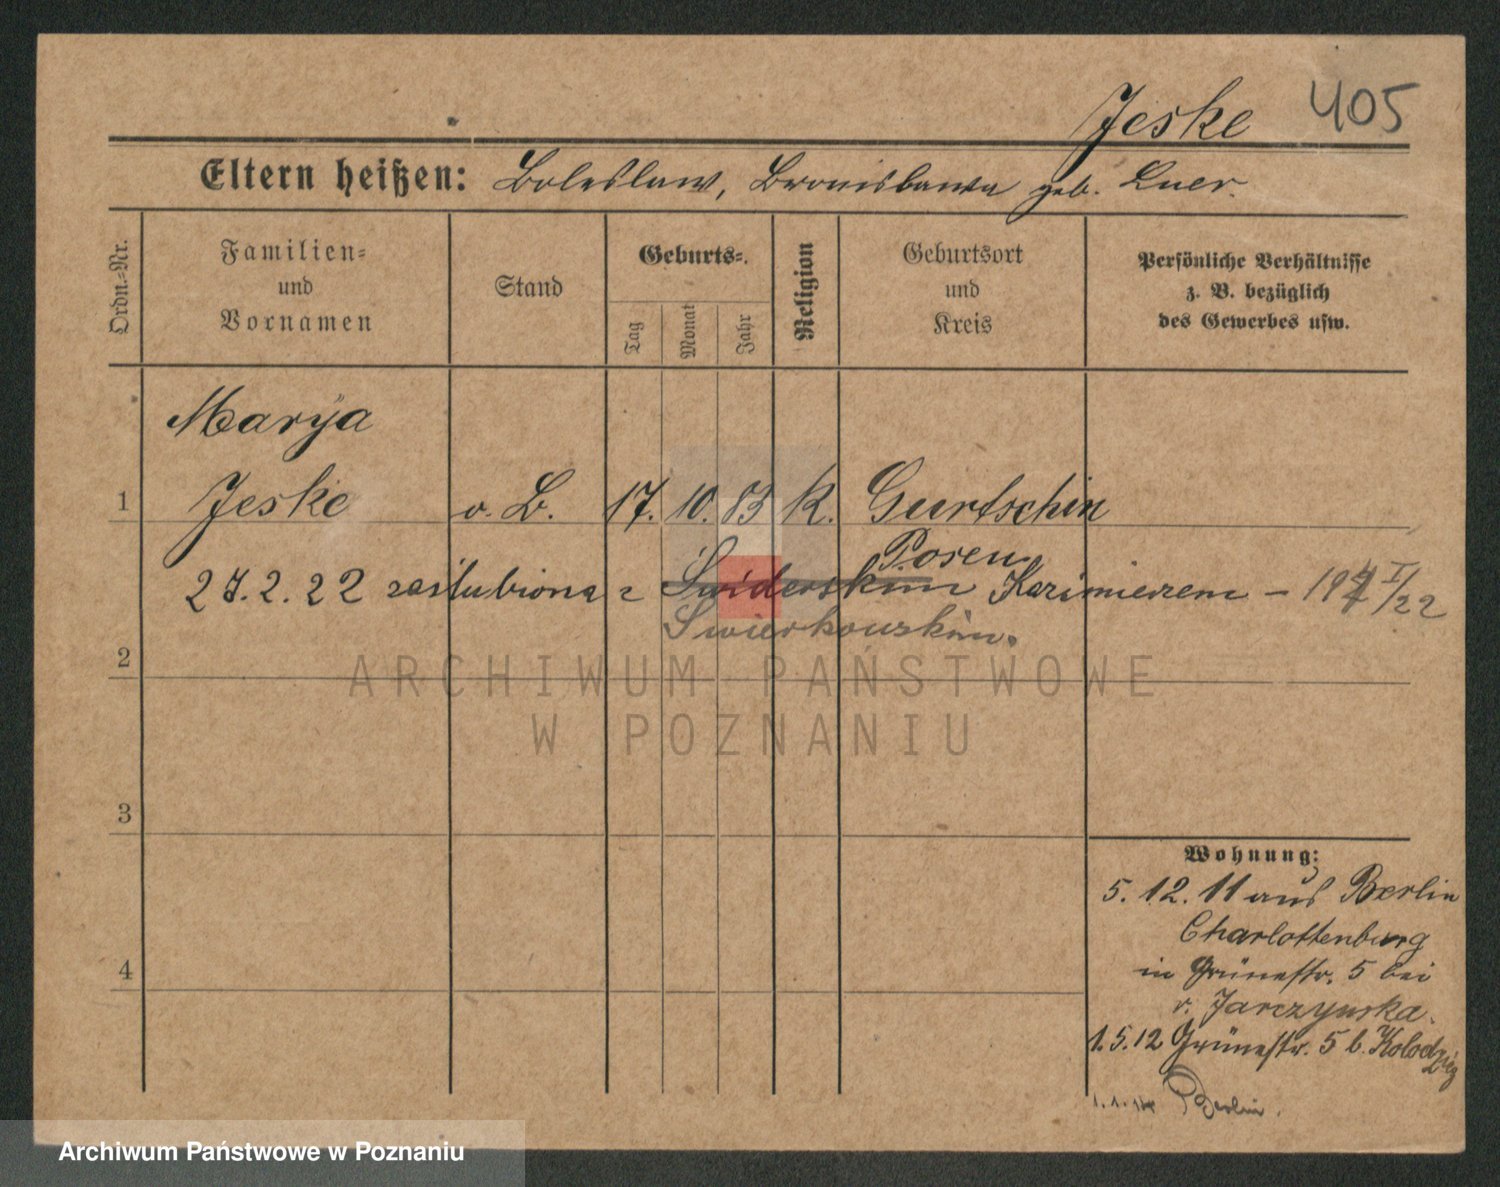 Jeske 405
Eltern heißen: Boleslaw, Bronislawa geb. Luer.
Ordn.-Nr.
Familien-
und
Vornamen
Stand
Geburts-
Tag
Monat
Jahr
Religion
Geburtsort
und
Kreis
Persönliche Verhältnisse
z. B. bezüglich
des Gewerbes usw.
Marya
1 Jeske o. B. 17. 10. 83 K. Gurtschin
Posen
27.2.22 zaślubiona z Świderskim Kazimierzem – I/22
Świerkowskim.
2
3
4
Wohnung:
5. 12. 11 aus Berlin
Charlottenburg
in Grünestr. 5 bei
v. Jarczynska.
1.5.12 Grünestr. 5 b. Kolodziej
Berlin.
ARCHIWUM PAŃSTWOWE
W POZNANIU
Archiwum Państwowe w Poznaniu